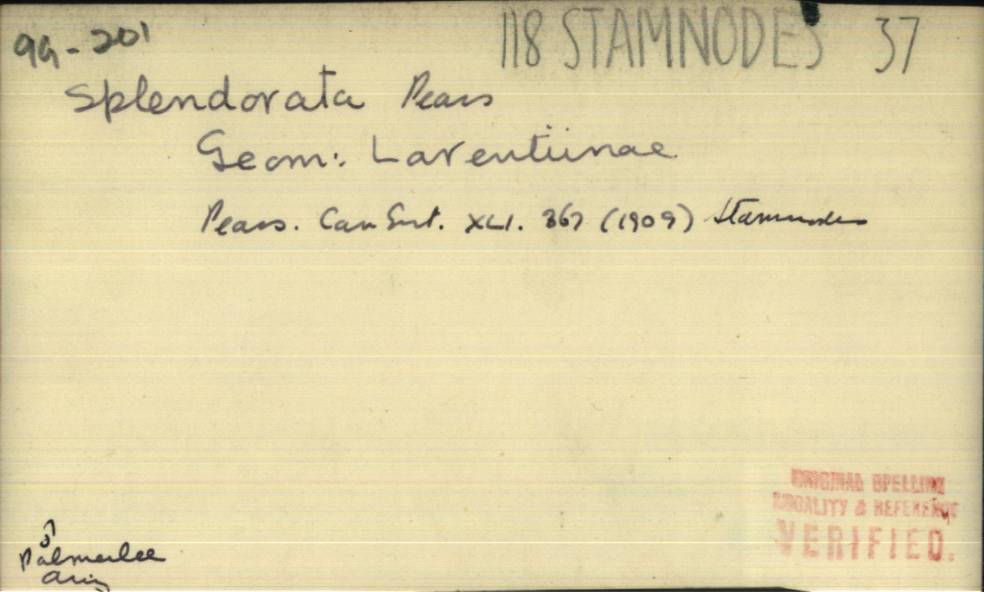 99-201
118 STAMNODES 37
Splendorata Pears
Geom: Larentiinae
Pears. Can Ent. XLI. 367 (1909) Stamnodes
Palmerlee
Ariz
ORIGINAL SPELLING
LOCALITY & REFERENCE
VERIFIED.